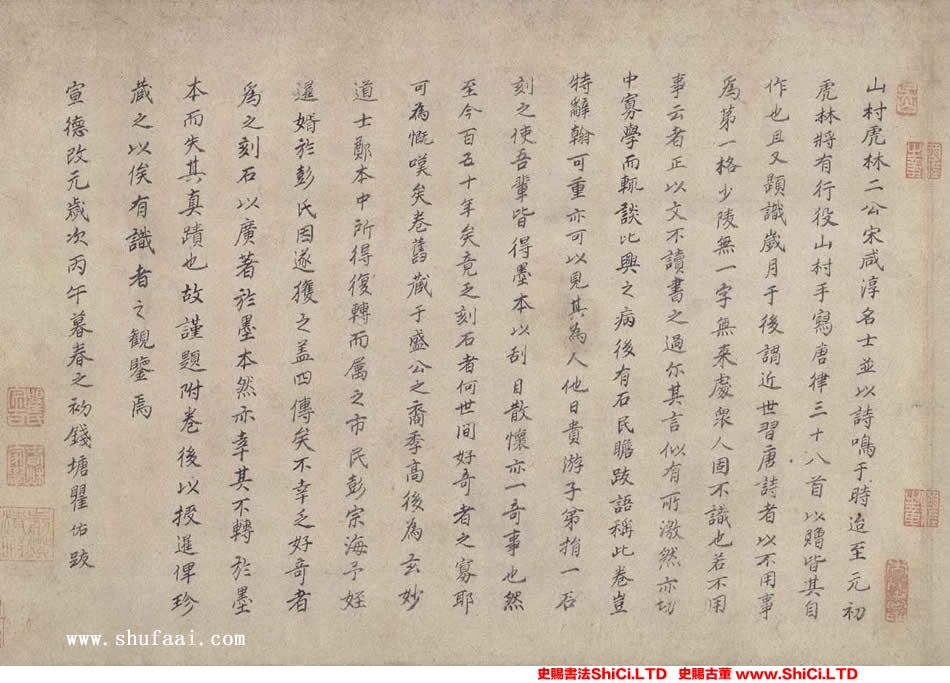 山村虎林二公宋咸淳名士並以詩鳴于時迨至元初
虎林將有行役山村手寫唐律三十八首以贈皆其自
作也且又題識歲月于後謂近世習唐詩者以不用事
為第一格少陵無一字無來處衆人固不識也若不用
事云者正以文不讀書之過尔其言似有所激然亦切
中寡學而輒談比興之病後有石民瞻跋語稱此卷豈
特辭翰可重亦可以見其為人他日貴游子弟捐一石
刻之使吾輩皆得墨本以刮目散懷亦一奇事也然
至今百五十年矣竟乏刻石者何世間好奇者之寡耶
可為慨嘆矣卷舊藏于盛公之裔季高後為玄妙
道士鄭本中所得復轉而属之市民彭宗海予姪
暹婿於彭氏因遂獲之盖四傳矣不幸乏好奇者
為之刻石以廣著於墨本然亦幸其不轉於墨
本而失其真蹟也故謹題附卷後以授暹俾珍
藏之以俟有識者之観鑒焉
宣德改元歲次丙午暮春之初錢塘瞿佑跋
www.shufaai.com
史賜書法ShiCi.LTD 史賜古董 www.ShiCi.LTD